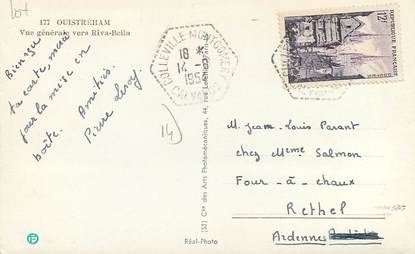 lot
177 OUISTREHAM
Vue générale vers Riva-Bella
Bien reçu
ta carte, merci
pour la mise en
boîte. Amitiés.
Pierre Leroy
14)
COLLEVILLE-MONTGOMERY
18 *
14 -
195
CALVADOS
12F
REPUBLIQUE FRANÇAISE
POSTES
(53) Cie des Arts Photomécaniques, 44, rue
Réal-Photo
M. Jean-Louis Parant
chez Mme Salmon
Four-à-chaux
Rethel
Ardennes